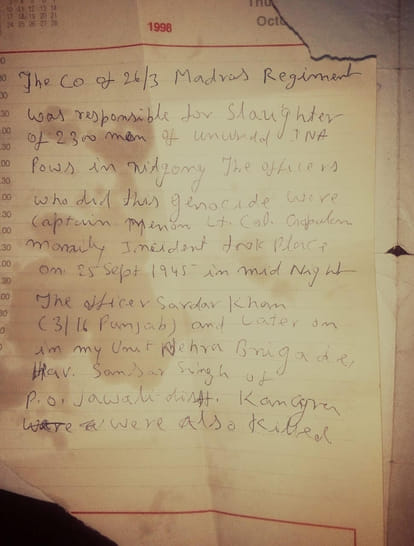 1998
Thu
Octo
The CO of 26/3 Madras Regiment
was responsible for Slaughter
of 2300 men of unarmed INA
Pows in Nilgonj The officers
who did this genocide were
Captain Menon Lt. Col.
Incident took Place
on 25 Sept 1945 in mid Night
The officer Sardar Khan
(3/16 Punjab) and Later on
in my Unit Nehru Brigade,
Hav. Sansar Singh of
P.O. Jawali distt. Kangra
were also Killed